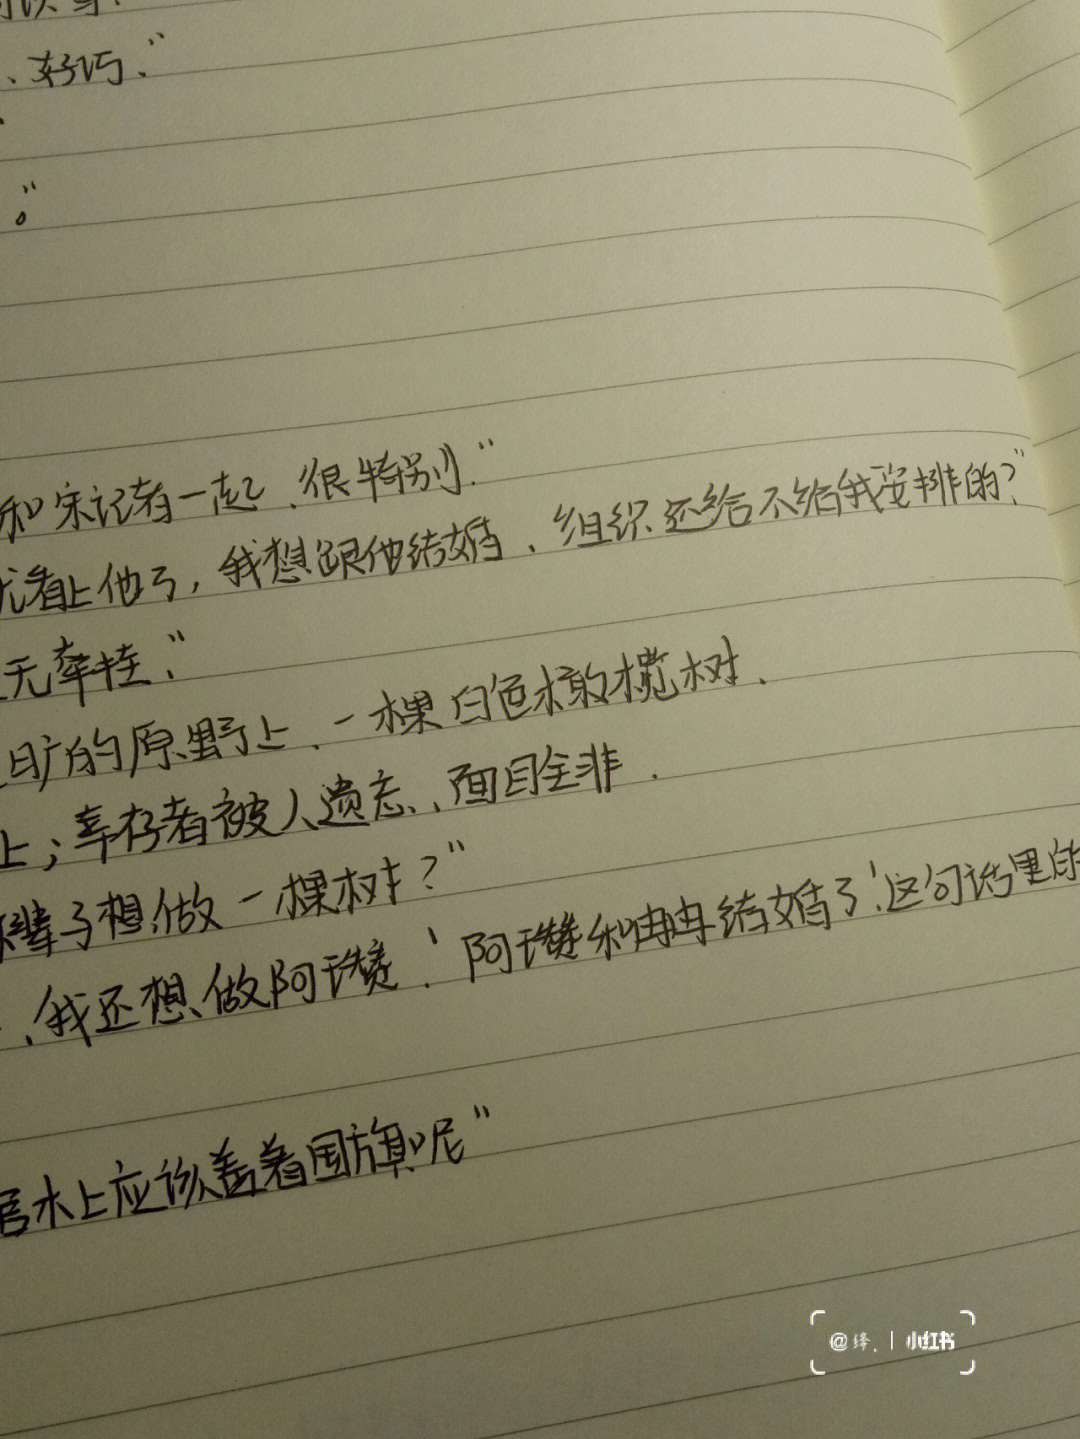 、好巧.”
。”
和宋记者一起、很特别.”
看上他了，我想跟他结婚、组织还给不给我安排的?”
无牵挂.”
旷的原野上、一棵白色橄榄树.
上；幸存者被人遗忘、面目全非.
辈子想做一棵树?”
、我还想做阿瓒.‘阿瓒和冉冉结婚了’这句话里的
木上应该盖着国旗呢”
@绛. | 小红书